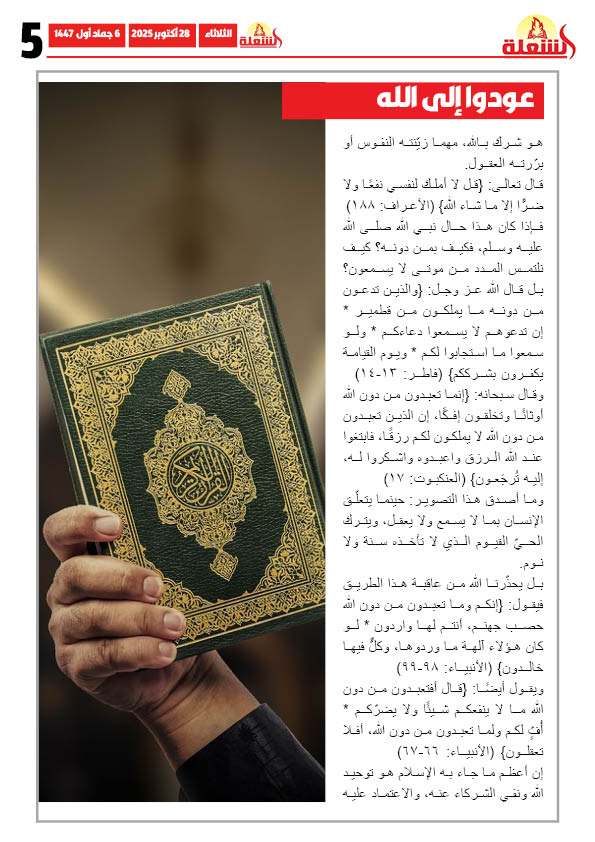 5
6 جماد أول 1447
28 أكتوبر 2025
الثلاثاء
الشعلة
الشعلة
عودوا إلى الله
هو شرك بالله، مهما زيّنته النفوس أو
برّرته العقول.
قال تعالى: {قل لا أملك لنفسي نفعًا ولا
ضرًّا إلا ما شاء الله} (الأعراف: ١٨٨)
فإذا كان هذا حال نبي الله صلى الله
عليه وسلم، فكيف بمن دونه؟ كيف
نلتمس المدد من موتى لا يسمعون؟
بل قال الله عز وجل: {والذين تدعون
من دونه ما يملكون من قطمير *
إن تدعوهم لا يسمعوا دعاءكم * ولو
سمعوا ما استجابوا لكم * ويوم القيامة
يكفرون بشرككم} (فاطر: ١٣-١٤)
وقال سبحانه: {إنما تعبدون من دون الله
أوثانًا وتخلقون إفكًا، إن الذين تعبدون
من دون الله لا يملكون لكم رزقًا، فابتغوا
عند الله الرزق واعبدوه واشكروا له،
إليه تُرجَعون} (العنكبوت: ١٧)
وما أصدق هذا التصوير: حينما يتعلّق
الإنسان بما لا يسمع ولا يعقل، ويترك
الحيّ القيوم الذي لا تأخذه سنة ولا
نوم.
بل يحذّرنا الله من عاقبة هذا الطريق
فيقول: {إنكم وما تعبدون من دون الله
حصب جهنم، أنتم لها واردون * لو
كان هؤلاء آلهة ما وردوها، وكلٌّ فيها
خالدون} (الأنبياء: ٩٨-٩٩)
ويقول أيضًا: {قال أفتعبدون من دون
الله ما لا ينفعكم شيئًا ولا يضرّكم *
أُفٍّ لكم ولما تعبدون من دون الله، أفلا
تعقلون} (الأنبياء: ٦٦-٦٧)
إن أعظم ما جاء به الإسلام هو توحيد
الله ونفي الشركاء عنه، والاعتماد عليه
القرآن الكريم